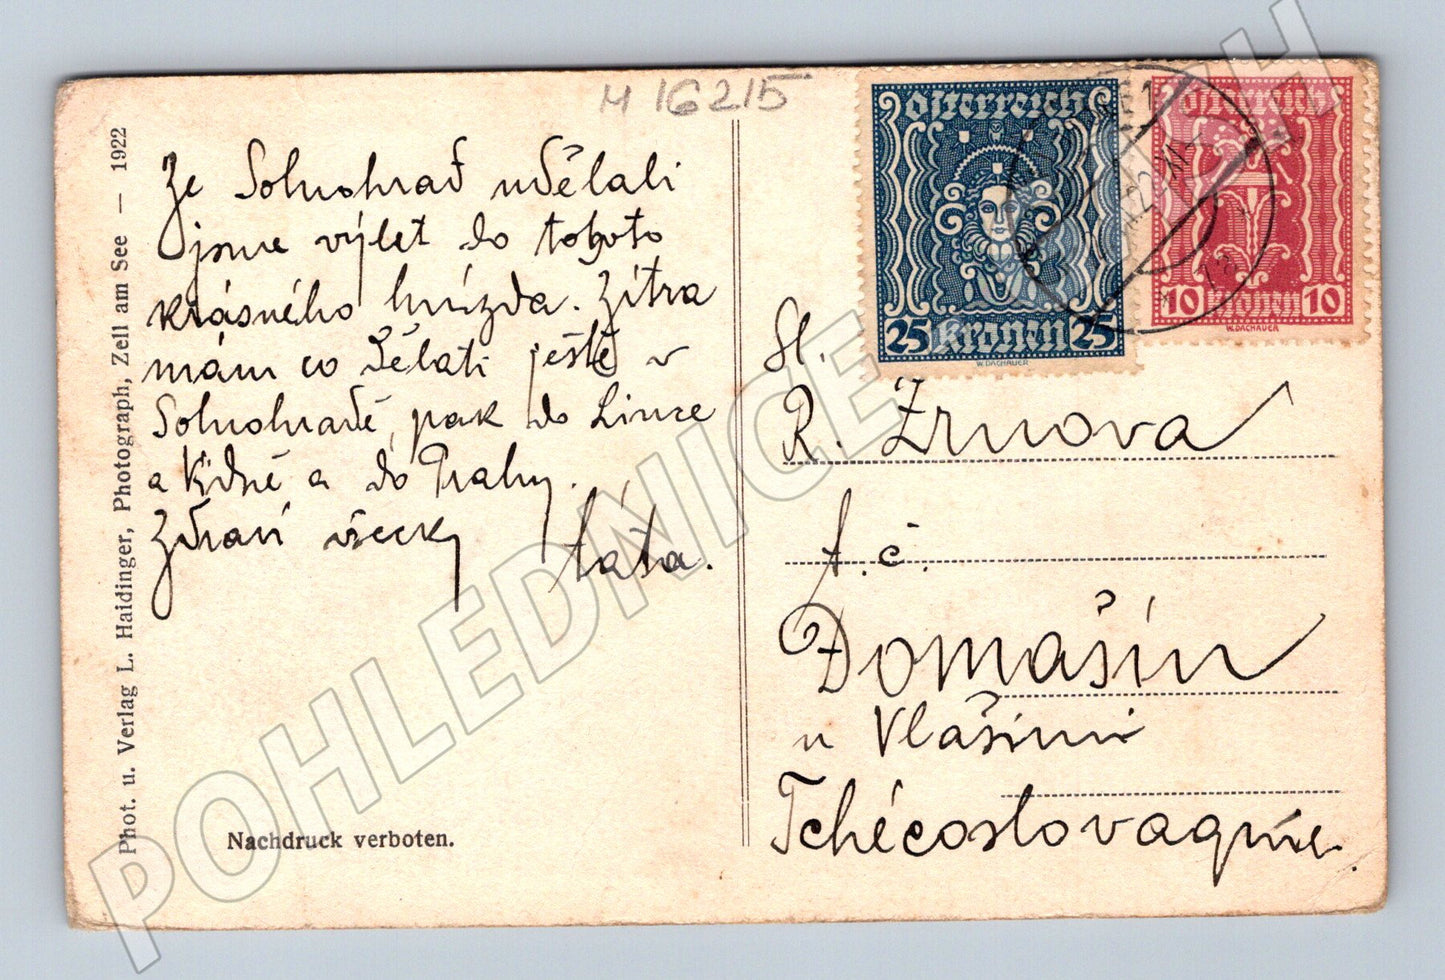 M 16215
Phot. u. Verlag L. Haidinger, Photograph, Zell am See — 1922
Ze Solnohrad udělali
jsme výlet do tohoto
krásného hnízda. Zítra
mám co dělati ještě v
Solnohradě, pak do Lince
a Vídně a do Prahy.
Zdraví všecky
táta.
Nachdruck verboten.
Österreich
25 Kronen 25
W. DACHAUER
Österreich
10 Kronen 10
W. DACHAUER
Sl.
R. Zrnova
t. č.
Domašín
u Vlašimi
Tchécoslovaquie.
POHLEDNICE